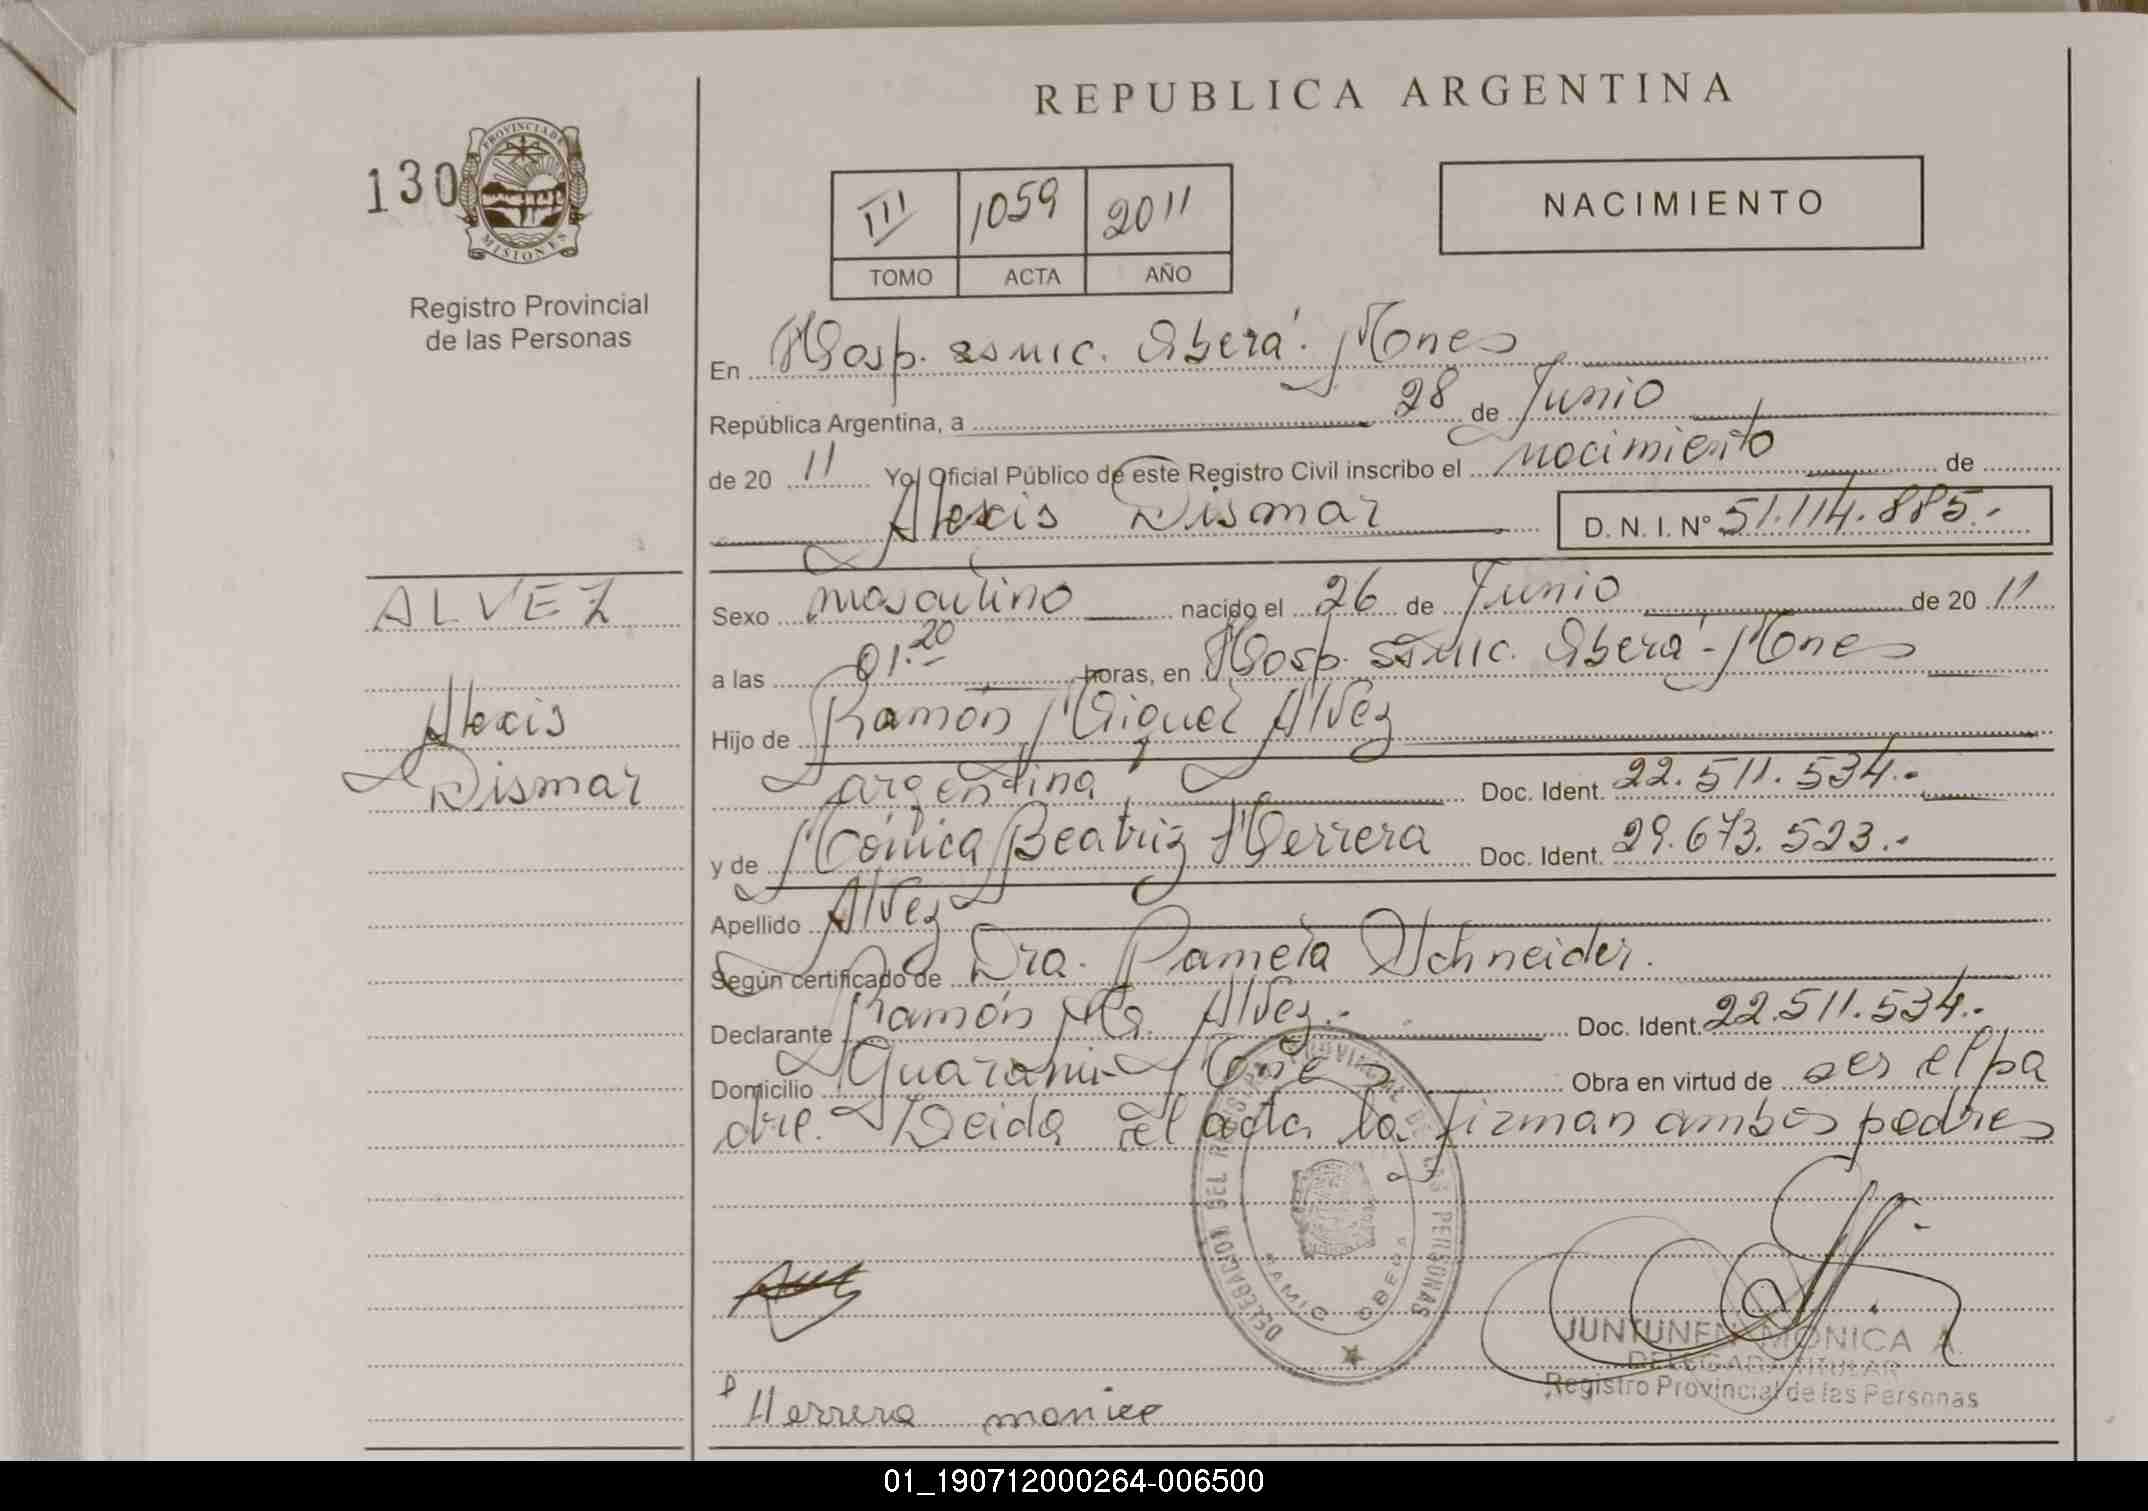 REPUBLICA ARGENTINA
130
PROVINCIA DE
MISIONES
Registro Provincial
de las Personas
III 1059 2011
TOMO ACTA AÑO
NACIMIENTO
En Hosp. SAMIC. Oberá. Mones
República Argentina, a 28 de Junio
de 20 11 Yo, Oficial Público de este Registro Civil inscribo el nacimiento de
Alexis Dismar D. N. I. Nº 51.114.885.-
ALVEZ
Alexis
Dismar
Sexo masculino nacido el 26 de Junio de 20 11
a las 01.20 horas, en Hosp. SAMIC. Oberá - Mones
Hijo de Ramón Miguel Alvez
argentina Doc. Ident. 22.511.534.-
y de Mónica Beatriz Herrera Doc. Ident. 29.673.523.-
Apellido Alvez
Según certificado de Dra. Pamela Schneider.
Declarante Ramón Mg. Alvez.- Doc. Ident. 22.511.534.-
Domicilio Guaraní - Mones Obra en virtud de ser el pa
dre. Leida el acta la firman ambos padres
DELEGACION DEL REGISTRO PROVINCIAL DE LAS PERSONAS
SAMIC OBERA
JUNTUNEN MONICA A.
DELEGADA TITULAR
Registro Provincial de las Personas
Herrera monica
01_190712000264-006500